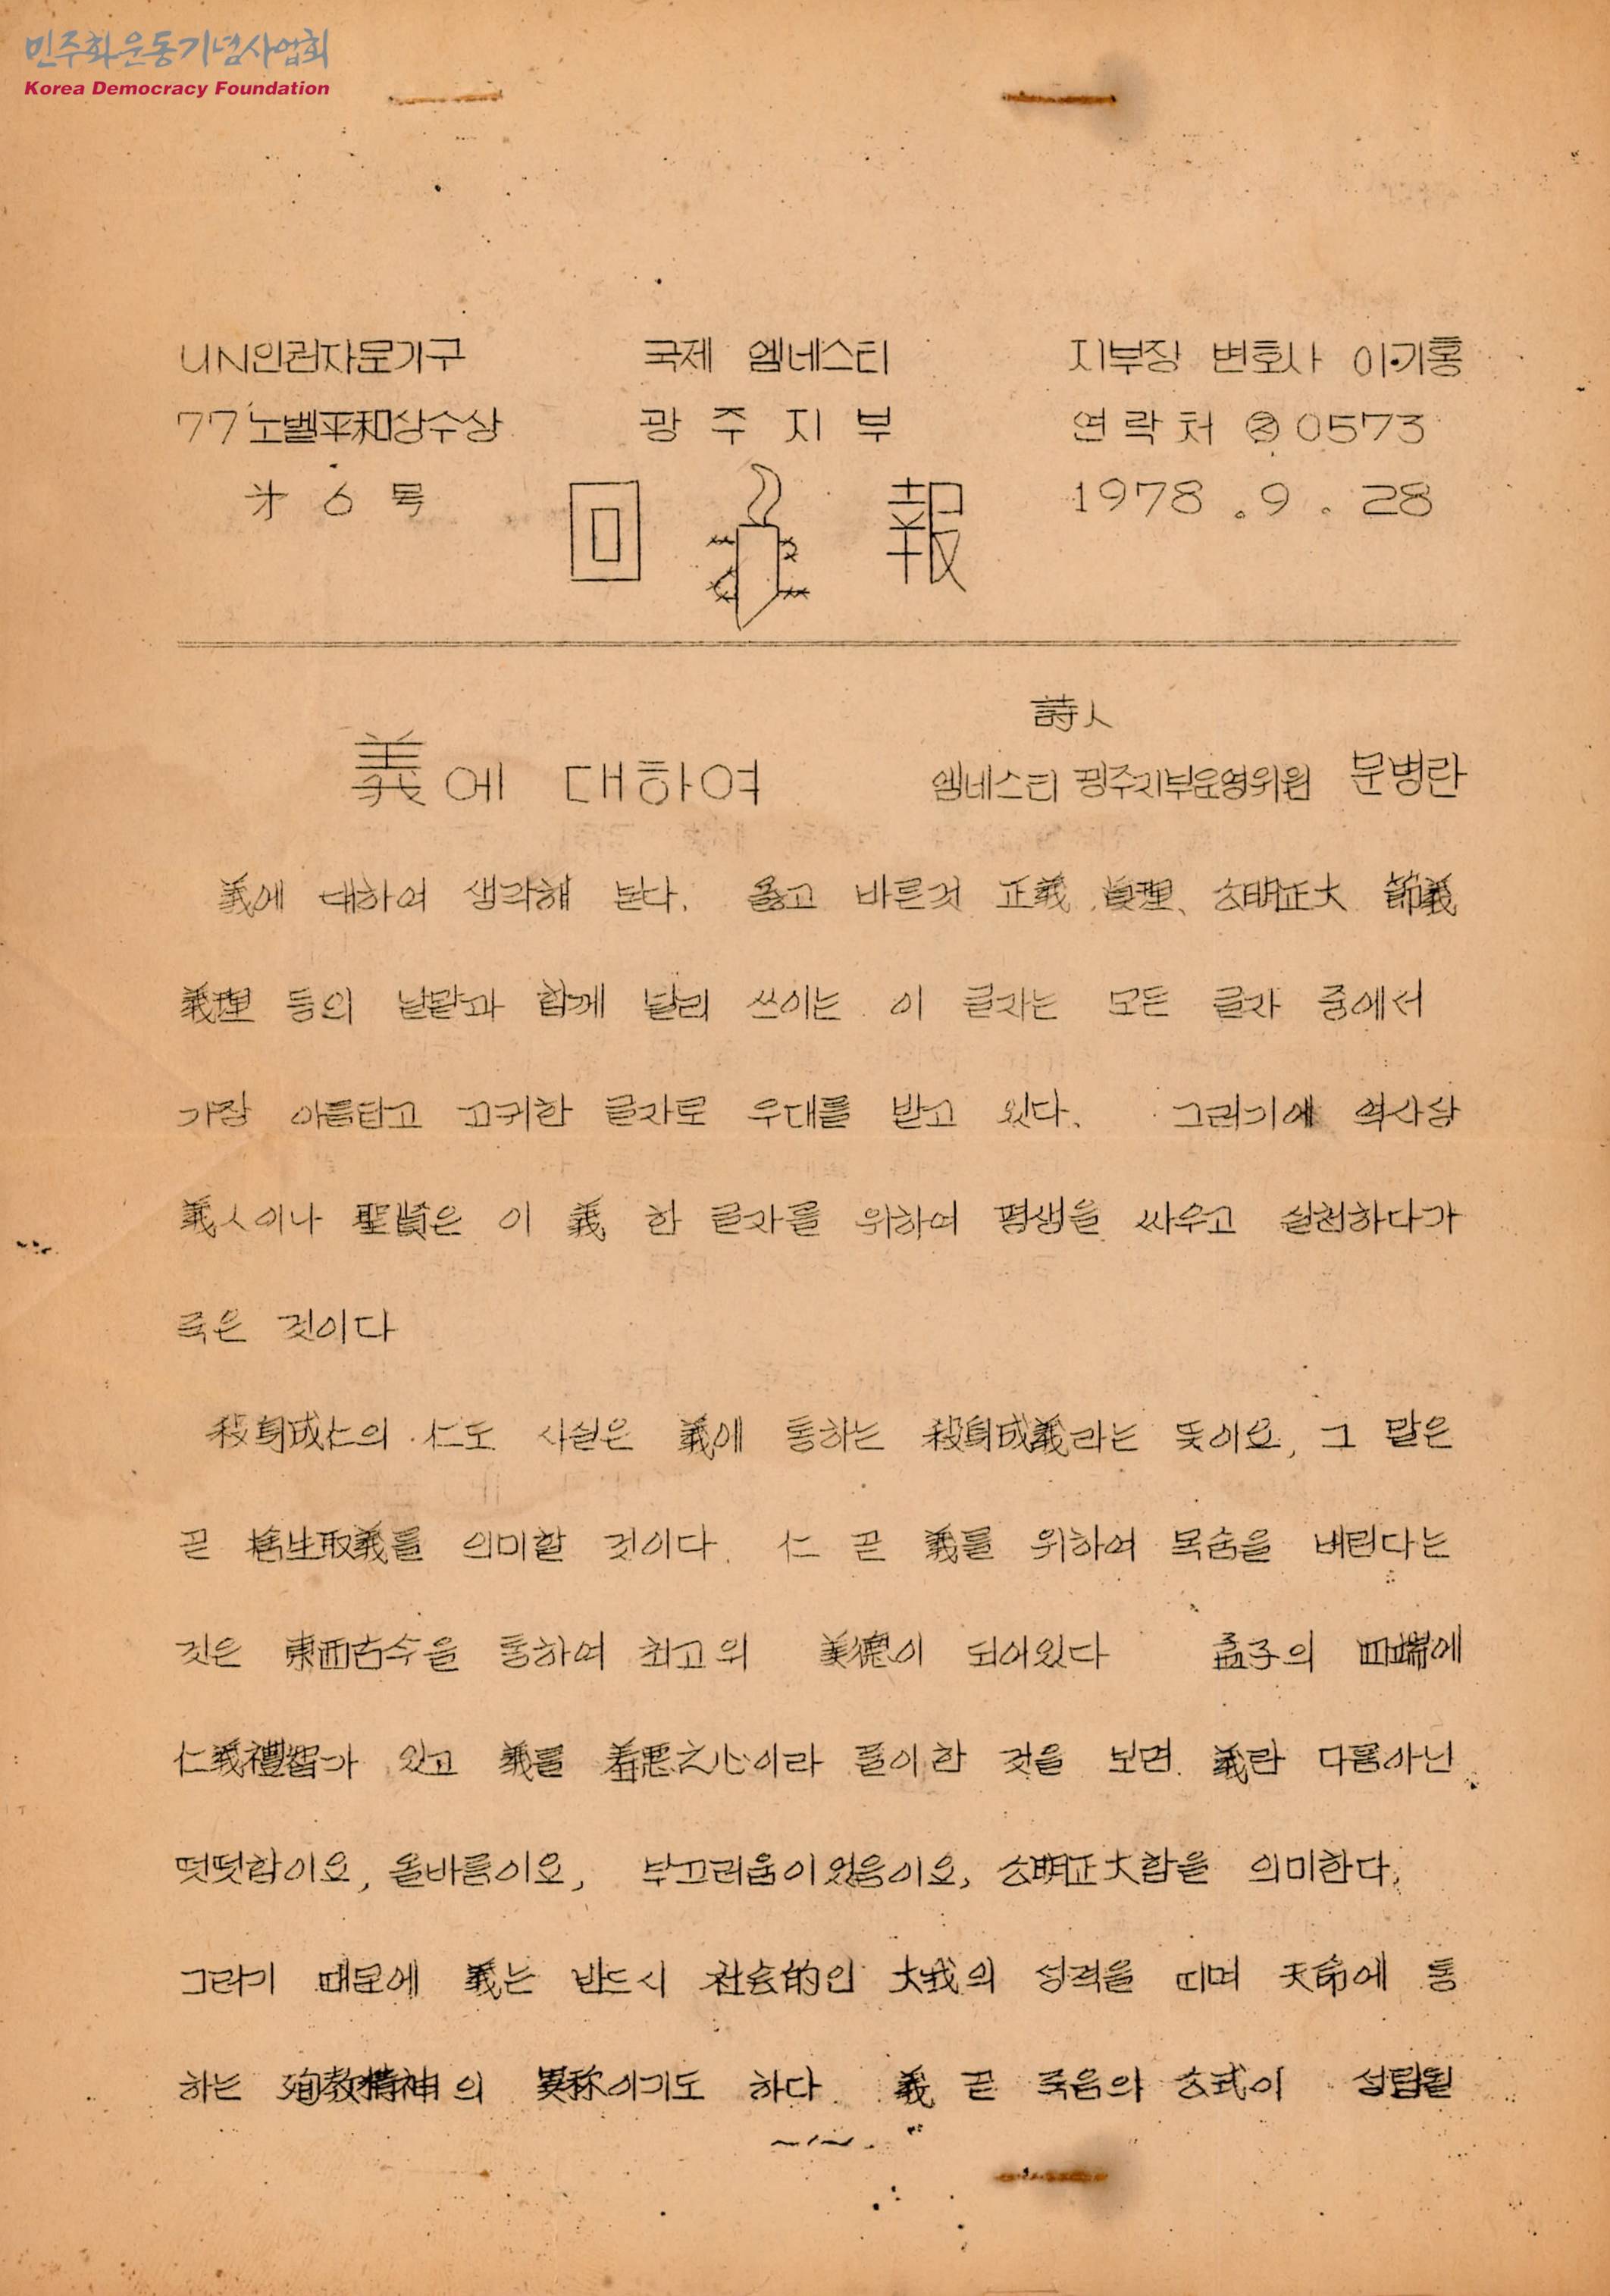 민주화운동기념사업회
Korea Democracy Foundation
UN인권자문기구 국제 엠네스티 지부장 변호사 이기홍
77노벨平和상수상 광주지부 연락처 ②0573
第6号 回報 1978.9.28
詩人
義에 대하여 엠네스티 광주지부운영위원 문병란
義에 대하여 생각해 본다. 옳고 바른것 正義 眞理、公明正大 節義
義理 등의 낱말과 함께 널리 쓰이는 이 글자는 모든 글자 중에서
가장 아름답고 고귀한 글자로 우대를 받고 있다. 그러기에 역사상
義人이나 聖賢은 이 義 한 글자를 위하여 평생을 싸우고 실천하다가
죽은 것이다
殺身成仁의 仁도 사실은 義에 통하는 殺身成義라는 뜻이요, 그 말은
곧 捨生取義를 의미할 것이다. 仁 곧 義를 위하여 목숨을 버린다는
것은 東西古今을 통하여 최고의 美德이 되어있다 孟子의 四端에
仁義禮智가 있고 義를 羞悪之心이라 풀이한 것을 보면 義란 다름아닌
떳떳함이요, 올바름이요, 부끄러움이있음이요, 公明正大함을 의미한다.
그러기 때문에 義는 반드시 社会的인 大我의 성격을 띠며 天命에 통
하는 殉教精神의 異称이기도 하다. 義 곧 죽음의 公式이 성립될
~1~